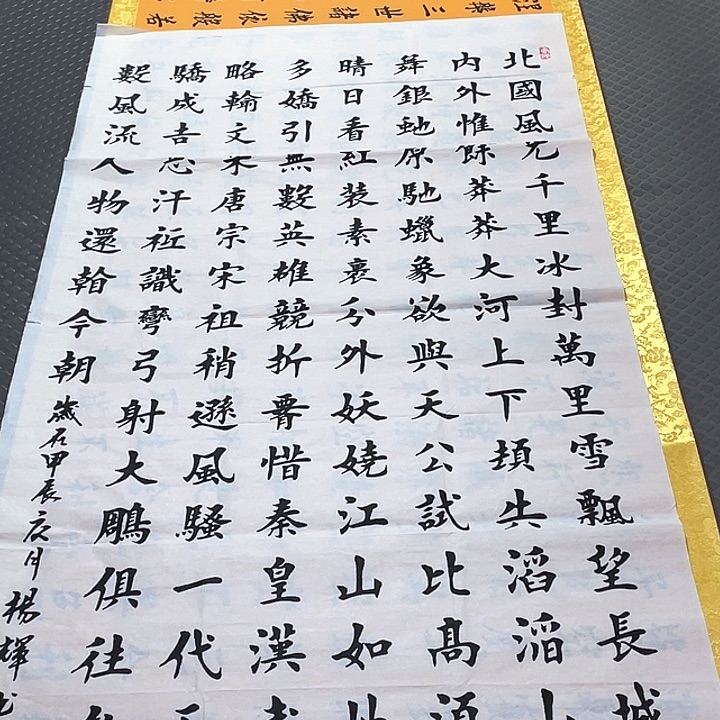 涅槃三世諸佛依般若
北國風光千里冰封萬里雪飄望長城
内外惟餘莽莽大河上下頓失滔滔山
舞銀蛇原馳蠟象欲與天公試比高須
晴日看紅装素裹分外妖嬈江山如此
多嬌引無數英雄競折腰惜秦皇漢武
略輸文采唐宗宋祖稍遜風騷一代天
驕成吉思汗祗識彎弓射大鵰俱往矣
數風流人物還看今朝
歲在甲辰夏月楊輝书